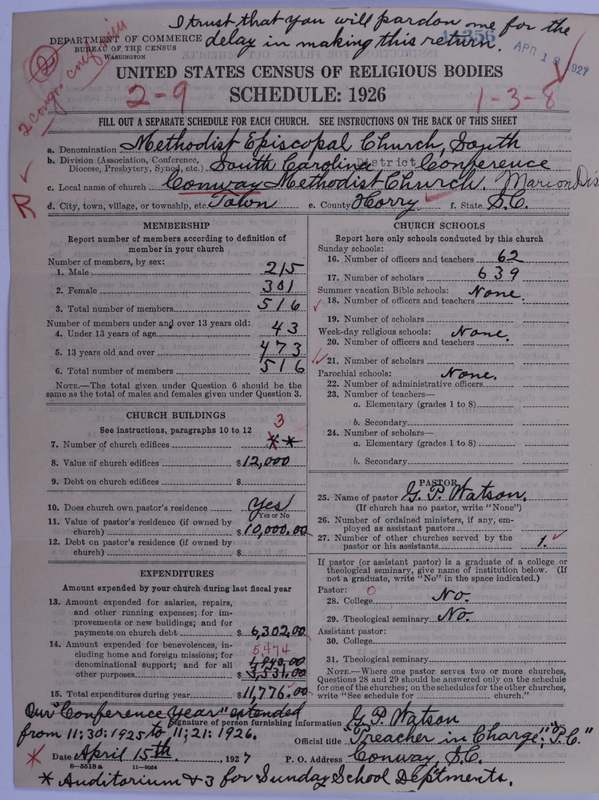 I trust that you will pardon me for the
delay in making this return.
DEPARTMENT OF COMMERCE
BUREAU OF THE CENSUS
WASHINGTON
APR 18 1927
2 congs confirm
UNITED STATES CENSUS OF RELIGIOUS BODIES
2-9 SCHEDULE: 1926 1-3-8
FILL OUT A SEPARATE SCHEDULE FOR EACH CHURCH. SEE INSTRUCTIONS ON THE BACK OF THIS SHEET
a. Denomination Methodist Episcopal Church, South
b. Division (Association, Conference, Diocese, Presbytery, Synod, etc.) South Carolina District Conference
c. Local name of church Conway Methodist Church. Marion Dis
d. City, town, village, or township, etc. Town e. County Horry f. State S.C.
R
MEMBERSHIP
Report number of members according to definition of
member in your church
Number of members, by sex:
1. Male 215
2. Female 301
3. Total number of members 516
Number of members under and over 13 years old:
4. Under 13 years of age 43
5. 13 years old and over 473
6. Total number of members 516
NOTE.—The total given under Question 6 should be the
same as the total of males and females given under Question 3.
CHURCH BUILDINGS
See instructions, paragraphs 10 to 12
3
7. Number of church edifices **
8. Value of church edifices $12,000
9. Debt on church edifices $
10. Does church own pastor's residence Yes
Yes or No
11. Value of pastor's residence (if owned by
church) $10,000.00
12. Debt on pastor's residence (if owned by
church) $
EXPENDITURES
Amount expended by your church during last fiscal year
13. Amount expended for salaries, repairs,
and other running expenses; for im-
provements or new buildings; and for
payments on church debt $6,302.00
14. Amount expended for benevolences, in-
cluding home and foreign missions; for
denominational support; and for all
other purposes $3,531.00
5474
15. Total expenditures during year $11,776.00
CHURCH SCHOOLS
Report here only schools conducted by this church
Sunday schools:
16. Number of officers and teachers 62
17. Number of scholars 639
Summer vacation Bible schools: None.
18. Number of officers and teachers
19. Number of scholars
Week-day religious schools: None.
20. Number of officers and teachers
21. Number of scholars
Parochial schools: None.
22. Number of administrative officers
23. Number of teachers—
a. Elementary (grades 1 to 8)
b. Secondary
24. Number of scholars—
a. Elementary (grades 1 to 8)
b. Secondary
PASTOR
25. Name of pastor G. P. Watson.
(If church has no pastor, write "None")
26. Number of ordained ministers, if any, em-
ployed as assistant pastors
27. Number of other churches served by the
pastor or his assistants 1.
If pastor (or assistant pastor) is a graduate of a college or
theological seminary, give name of institution below. (If
not a graduate, write "No" in the space indicated.)
Pastor: 0
28. College No.
29. Theological seminary No.
Assistant pastor:
30. College
31. Theological seminary
NOTE.—Where one pastor serves two or more churches,
Questions 28 and 29 should be answered only on the schedule
for one of the churches; on the schedules for the other churches,
write "See schedule for church."
Our "Conference year" extended
from 11:30:1925 to 11:21:1926.
Signature of person furnishing information G. P. Watson
Official title "Preacher in Charge; "P.C."
Date April 15th. 1927 P. O. Address Conway, S.C.
8—5518 a 11—9024
* Auditorium & 3 for Sunday School Deptments.